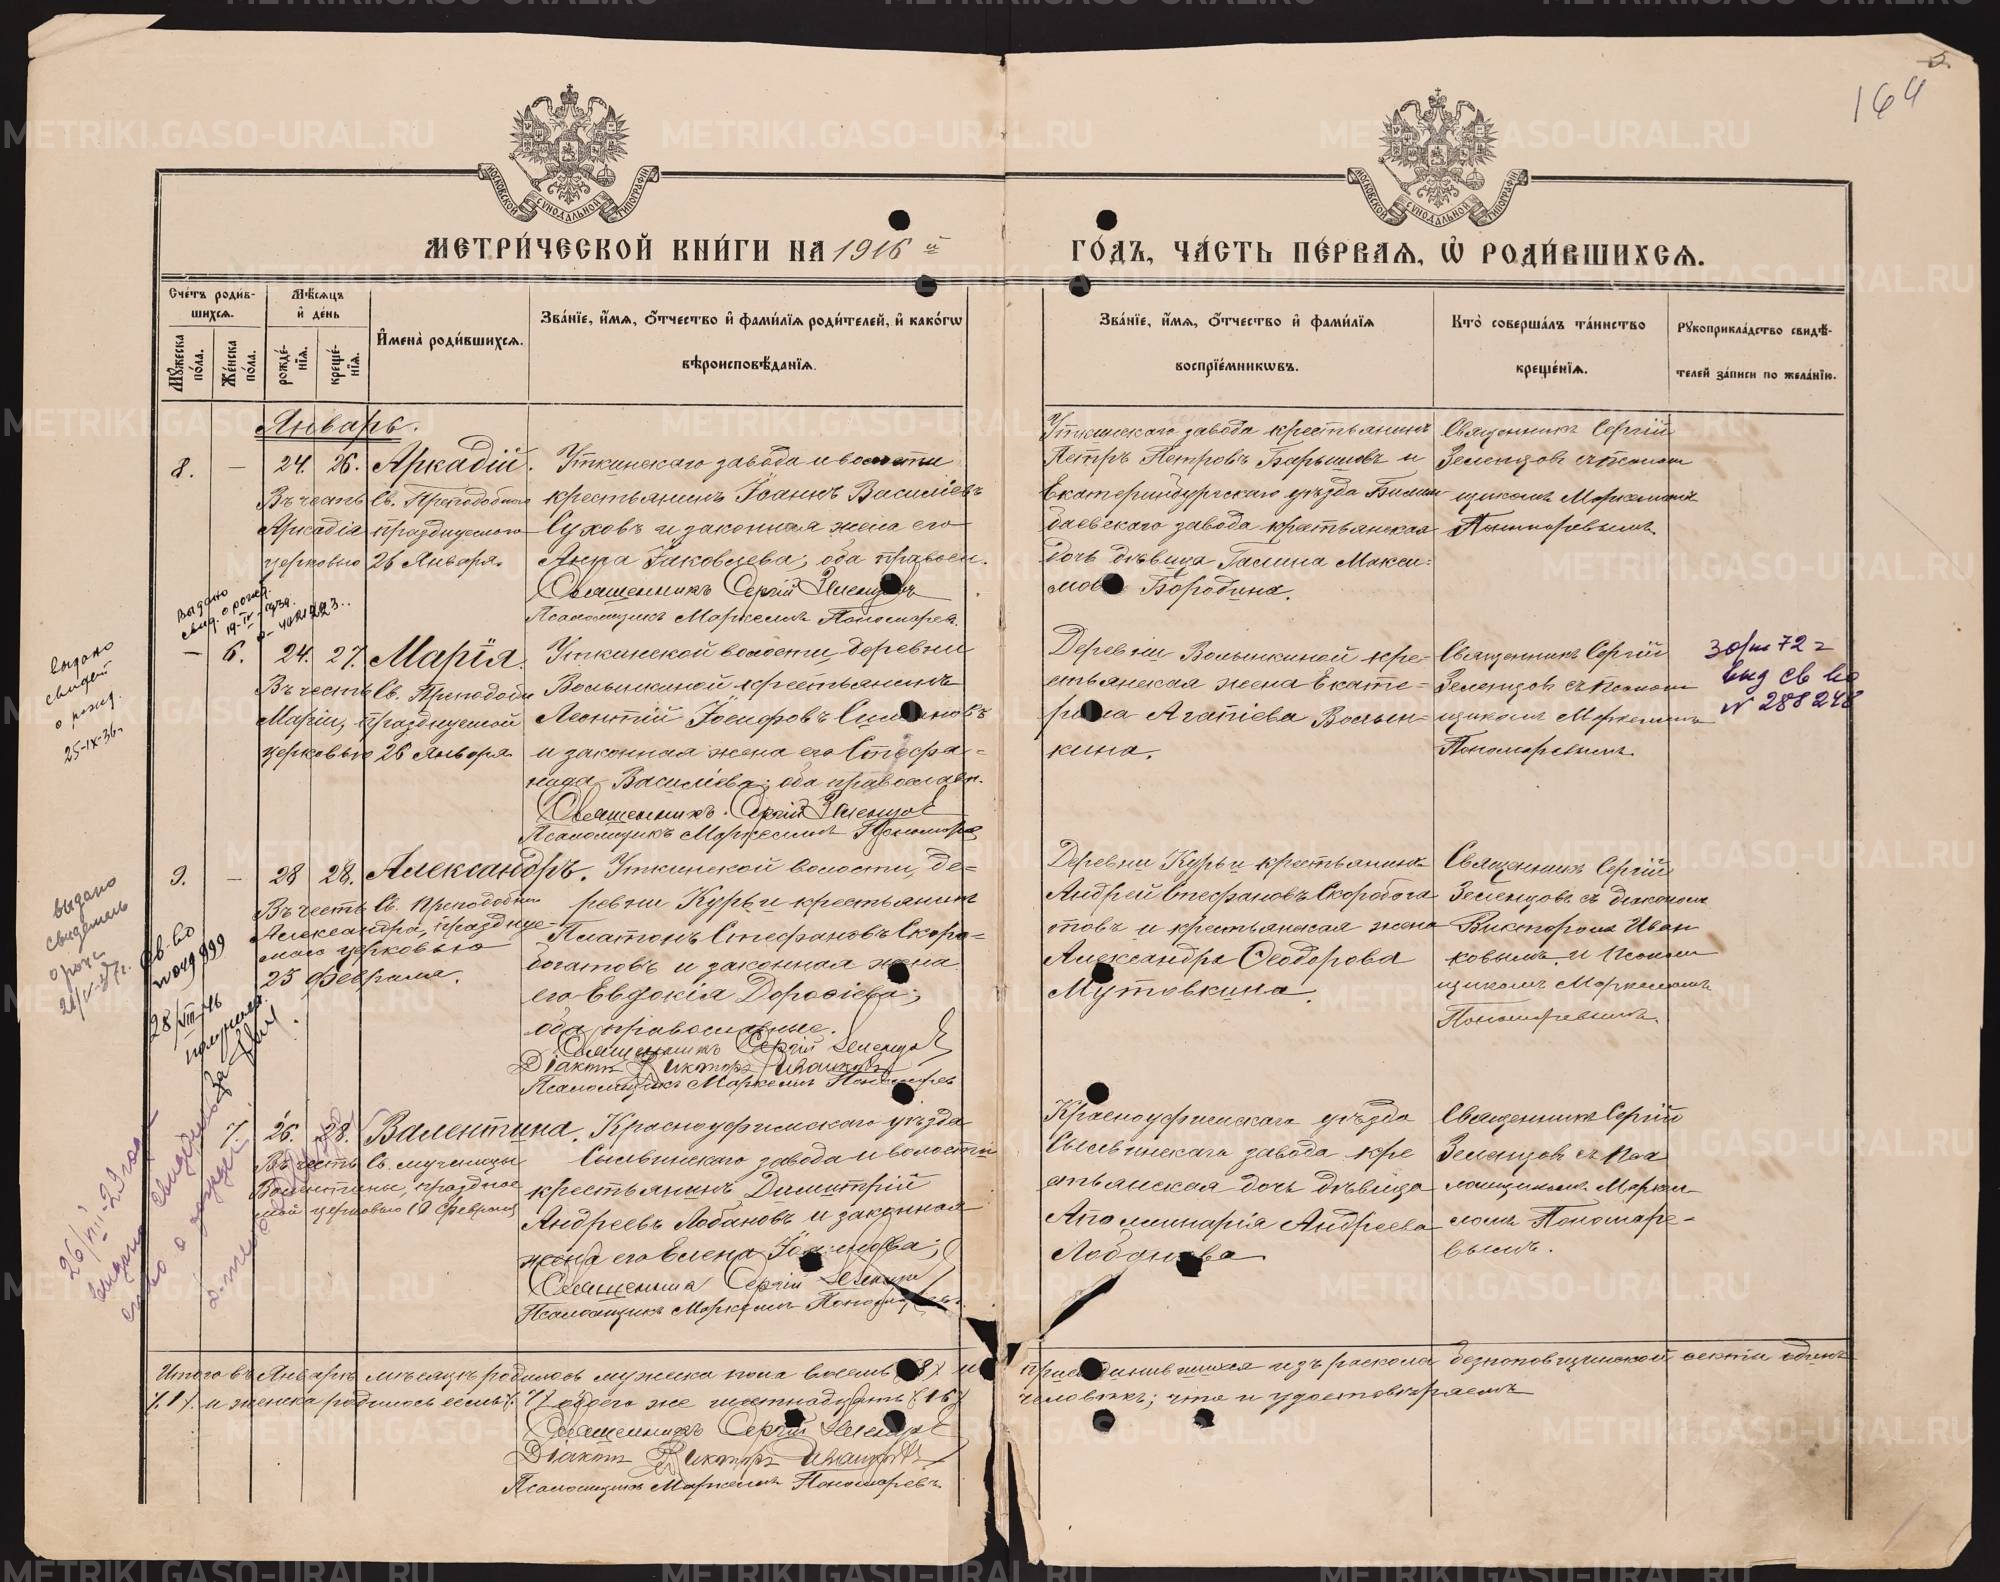 164
МОСКОВСКОЙ СѴНОДАЛЬНОЙ ТИПОГРАФІИ
МОСКОВСКОЙ СѴНОДАЛЬНОЙ ТИПОГРАФІИ
МЕТРИ́ЧЕСКОЙ КНИ́ГИ НА 1916 й
ГО́ДЪ, ЧА́СТЬ ПЕ́РВАѦ, Ѡ҆ РОДИ́ВШИХСѦ.
Сче́тъ роди́в-
шихсѧ.
Мѣ́сѧцъ
и҆ де́нь
Мꙋ́жеска по́ла.
Же́нска по́ла.
рожде́нїѧ.
креще́нїѧ.
И҆мена̀ роди́вшихсѧ.
Зва́нїе, и҆́мѧ, ѻ҆́тчество и҆ фами́лїѧ роди́телей, и҆ како́гѡ
вѣроисповѣ́данїѧ.
Зва́нїе, и҆́мѧ, ѻ҆́тчество и҆ фами́лїѧ
воспрїе́мникѡвъ.
Кто̀ соверша́лъ та́инство
креще́нїѧ.
Рꙋкоприкла́дство свидѣ́-
телей за́писи по жела́нїю.
Январь.
8. — 24. 26. Аркадій.
Въ честь Св. Преподобнаго
Аркадія празднуемаго
церковью 26 Января.
Уткинскаго завода и волости
крестьянинъ Іоаннъ Василіевъ
Суховъ и законная жена его
Анна Іаковлева; оба правосл.
Священникъ Сергій Зеленцовъ
Псаломщикъ Маркеллъ Пономарев.
Уткинскаго завода крестьянинъ
Петръ Петровъ Барышовъ и
Екатеринбургскаго уѣзда Билим
баевскаго завода крестьянская
дочь дѣвица Галина Макси-
мова Бородина.
Священникъ Сергій
Зеленцовъ съ псалом
щикомъ Маркелломъ
Пономаревымъ.
Выдано
свид. о рожд.
— 6. 24. 27. Марія.
Въ честь Св. Преподобн
Маріи, празднуемой
церковью 26 Января
Уткинской волости деревни
Волынкиной крестьянинъ
Леонтій Іосифовъ
и законная жена его Стефа-
нида Василіева; оба православн.
Священникъ Сергій Зеленцов
Псаломщикъ Маркеллъ Пономарев
Деревни Волынкиной кре-
стьянская жена Екате-
рина Агапіева Волын-
кина.
Священникъ Сергій
Зеленцовъ съ псалом
щикомъ Маркелломъ
Пономаревымъ.
выд св во
№ 288248
выдано
свидет
о рожд.
25-IX-36г.
9. — 28 28. Александръ.
Въ честь Св. Преподобн
Александра, праздну-
маго церковью
25 Февраля.
Уткинской волости, де-
ревни Курьи крестьянинъ
Платонъ Стефановъ Скоро-
богатовъ и законная жена
его Евдокія Дороѳіева;
оба православные.
Священникъ Сергій Зеленцов
Діаконъ Викторъ Иванковъ
Псаломщикъ Маркеллъ Пономарев
Деревни Курьи крестьянинъ
Андрей Стефановъ Скоробога
товъ и крестьянская жена
Александра Ѳеодорова
Мутовкина.
Священникъ Сергій
Зеленцовъ съ діакономъ
Викторомъ Иван
ковымъ и Псалом
щикомъ Маркелломъ
Пономаревымъ.
выдано
Св-во
28/VIII-46
7. 26. 28. Валентина.
Въ честь Св. мученицы
Валентины, празднуе
мой церковью 10 Февраля
Красноуфимскаго уѣзда
Сылвинскаго завода и волости
крестьянинъ Димитрій
Андреевъ Лобановъ и законная
жена его Елена
Священникъ Сергій Зеленцов
Псаломщикъ Маркеллъ Пономаревъ.
Красноуфимскаго уѣзда
Сылвинскаго завода кре
стьянская дочь дѣвица
Аполлинарія Андреева
Лобанова
Священникъ Сергій
Зеленцовъ съ Пса
ломщикомъ Маркел-
ломъ Пономаре-
вымъ.
Итого въ Январѣ мѣсяцѣ родилось мужеска пола восемь (8) и
присоединившихся изъ раскола безпоповщинской секты одинъ
(1) и женска родилось семь (7) обоего же шестнадцать (16)
человѣкъ; что и удостовѣряемъ
Священникъ Сергій Зеленцов
Діаконъ Викторъ Иванковъ
Псаломщикъ Маркеллъ Пономаревъ.
METRIKI.GASO-URAL.RU